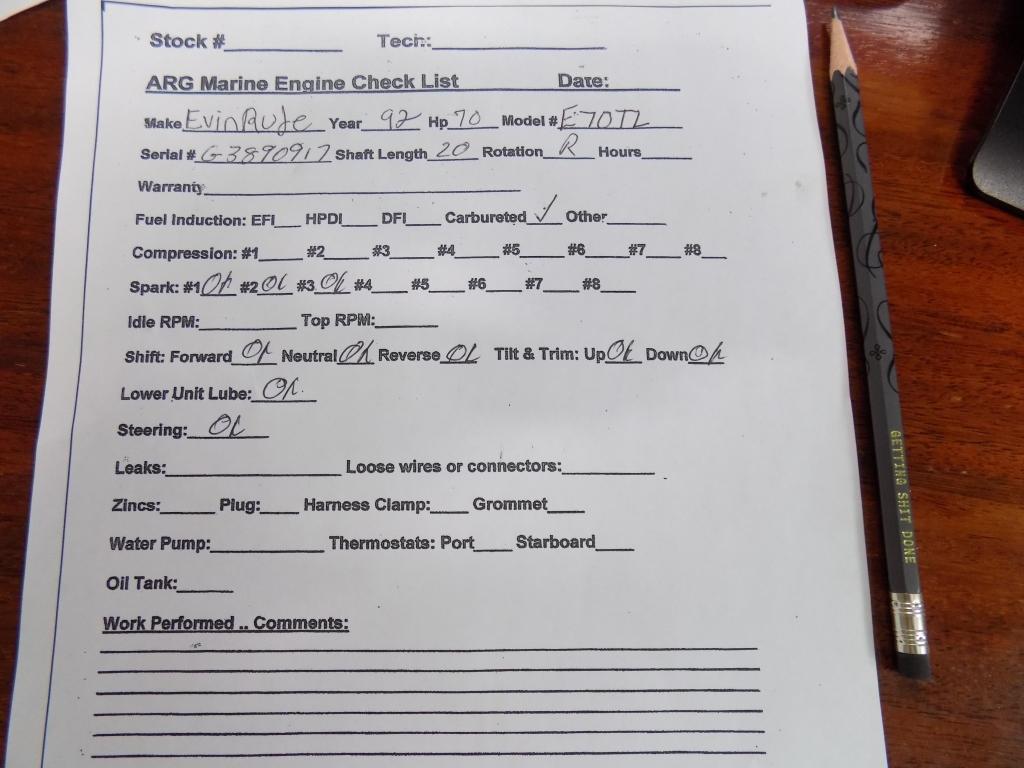 Stock #____ Tech:____
ARG Marine Engine Check List Date:____
Make EvinRude Year 92 Hp 70 Model # E70TL
Serial # G3890917 Shaft Length 20 Rotation R Hours____
Warranty____
Fuel Induction: EFI___ HPDI___ DFI___ Carbureted ✓ Other____
Compression: #1____ #2____ #3____ #4____ #5____ #6____ #7____ #8____
Spark: #1 Ok #2 Ok #3 Ok #4____ #5____ #6____ #7____ #8____
Idle RPM:____ Top RPM:____
Shift: Forward Ok Neutral Ok Reverse Ok Tilt & Trim: Up Ok Down Ok
Lower Unit Lube: Ok.
Steering: Ok
Leaks:____ Loose wires or connectors:____
Zincs:____ Plug:____ Harness Clamp:____ Grommet____
Water Pump:____ Thermostats: Port____ Starboard____
Oil Tank:____
Work Performed .. Comments:
GETTING SHIT DONE